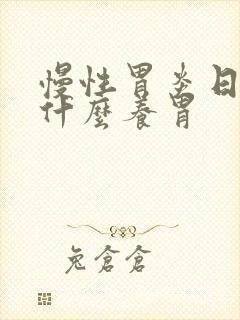 慢性胃炎日
什麼養胃
兔倉倉